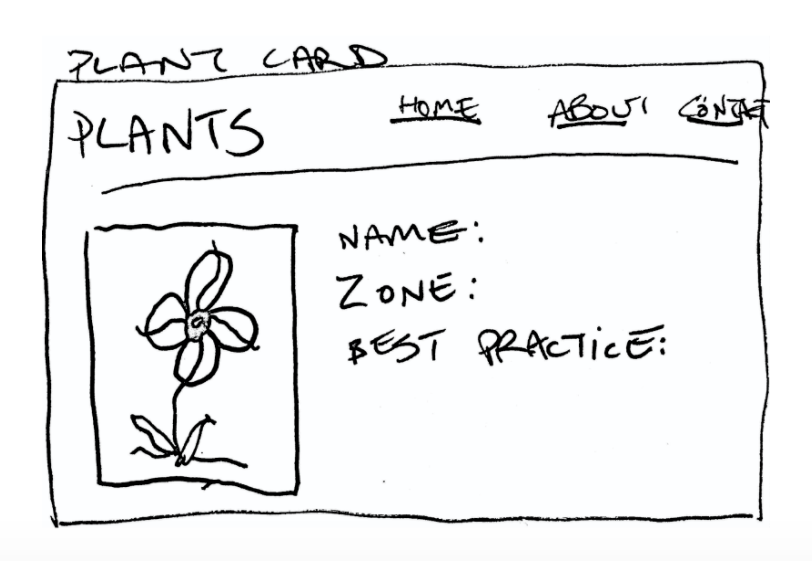 PLANT CARD
PLANTS HOME ABOUT CONTACT
NAME:
ZONE:
BEST PRACTICE: